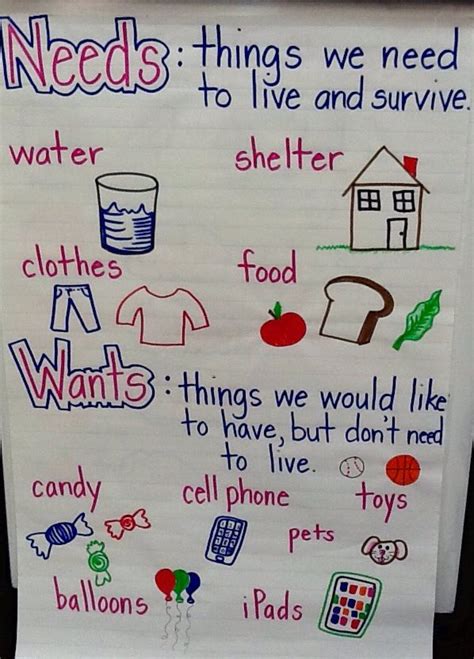 Needs: things we need
to live and survive.
water shelter
clothes food
Wants: things we would like
to have, but don't need
to live.
candy cell phone toys
pets
balloons iPads